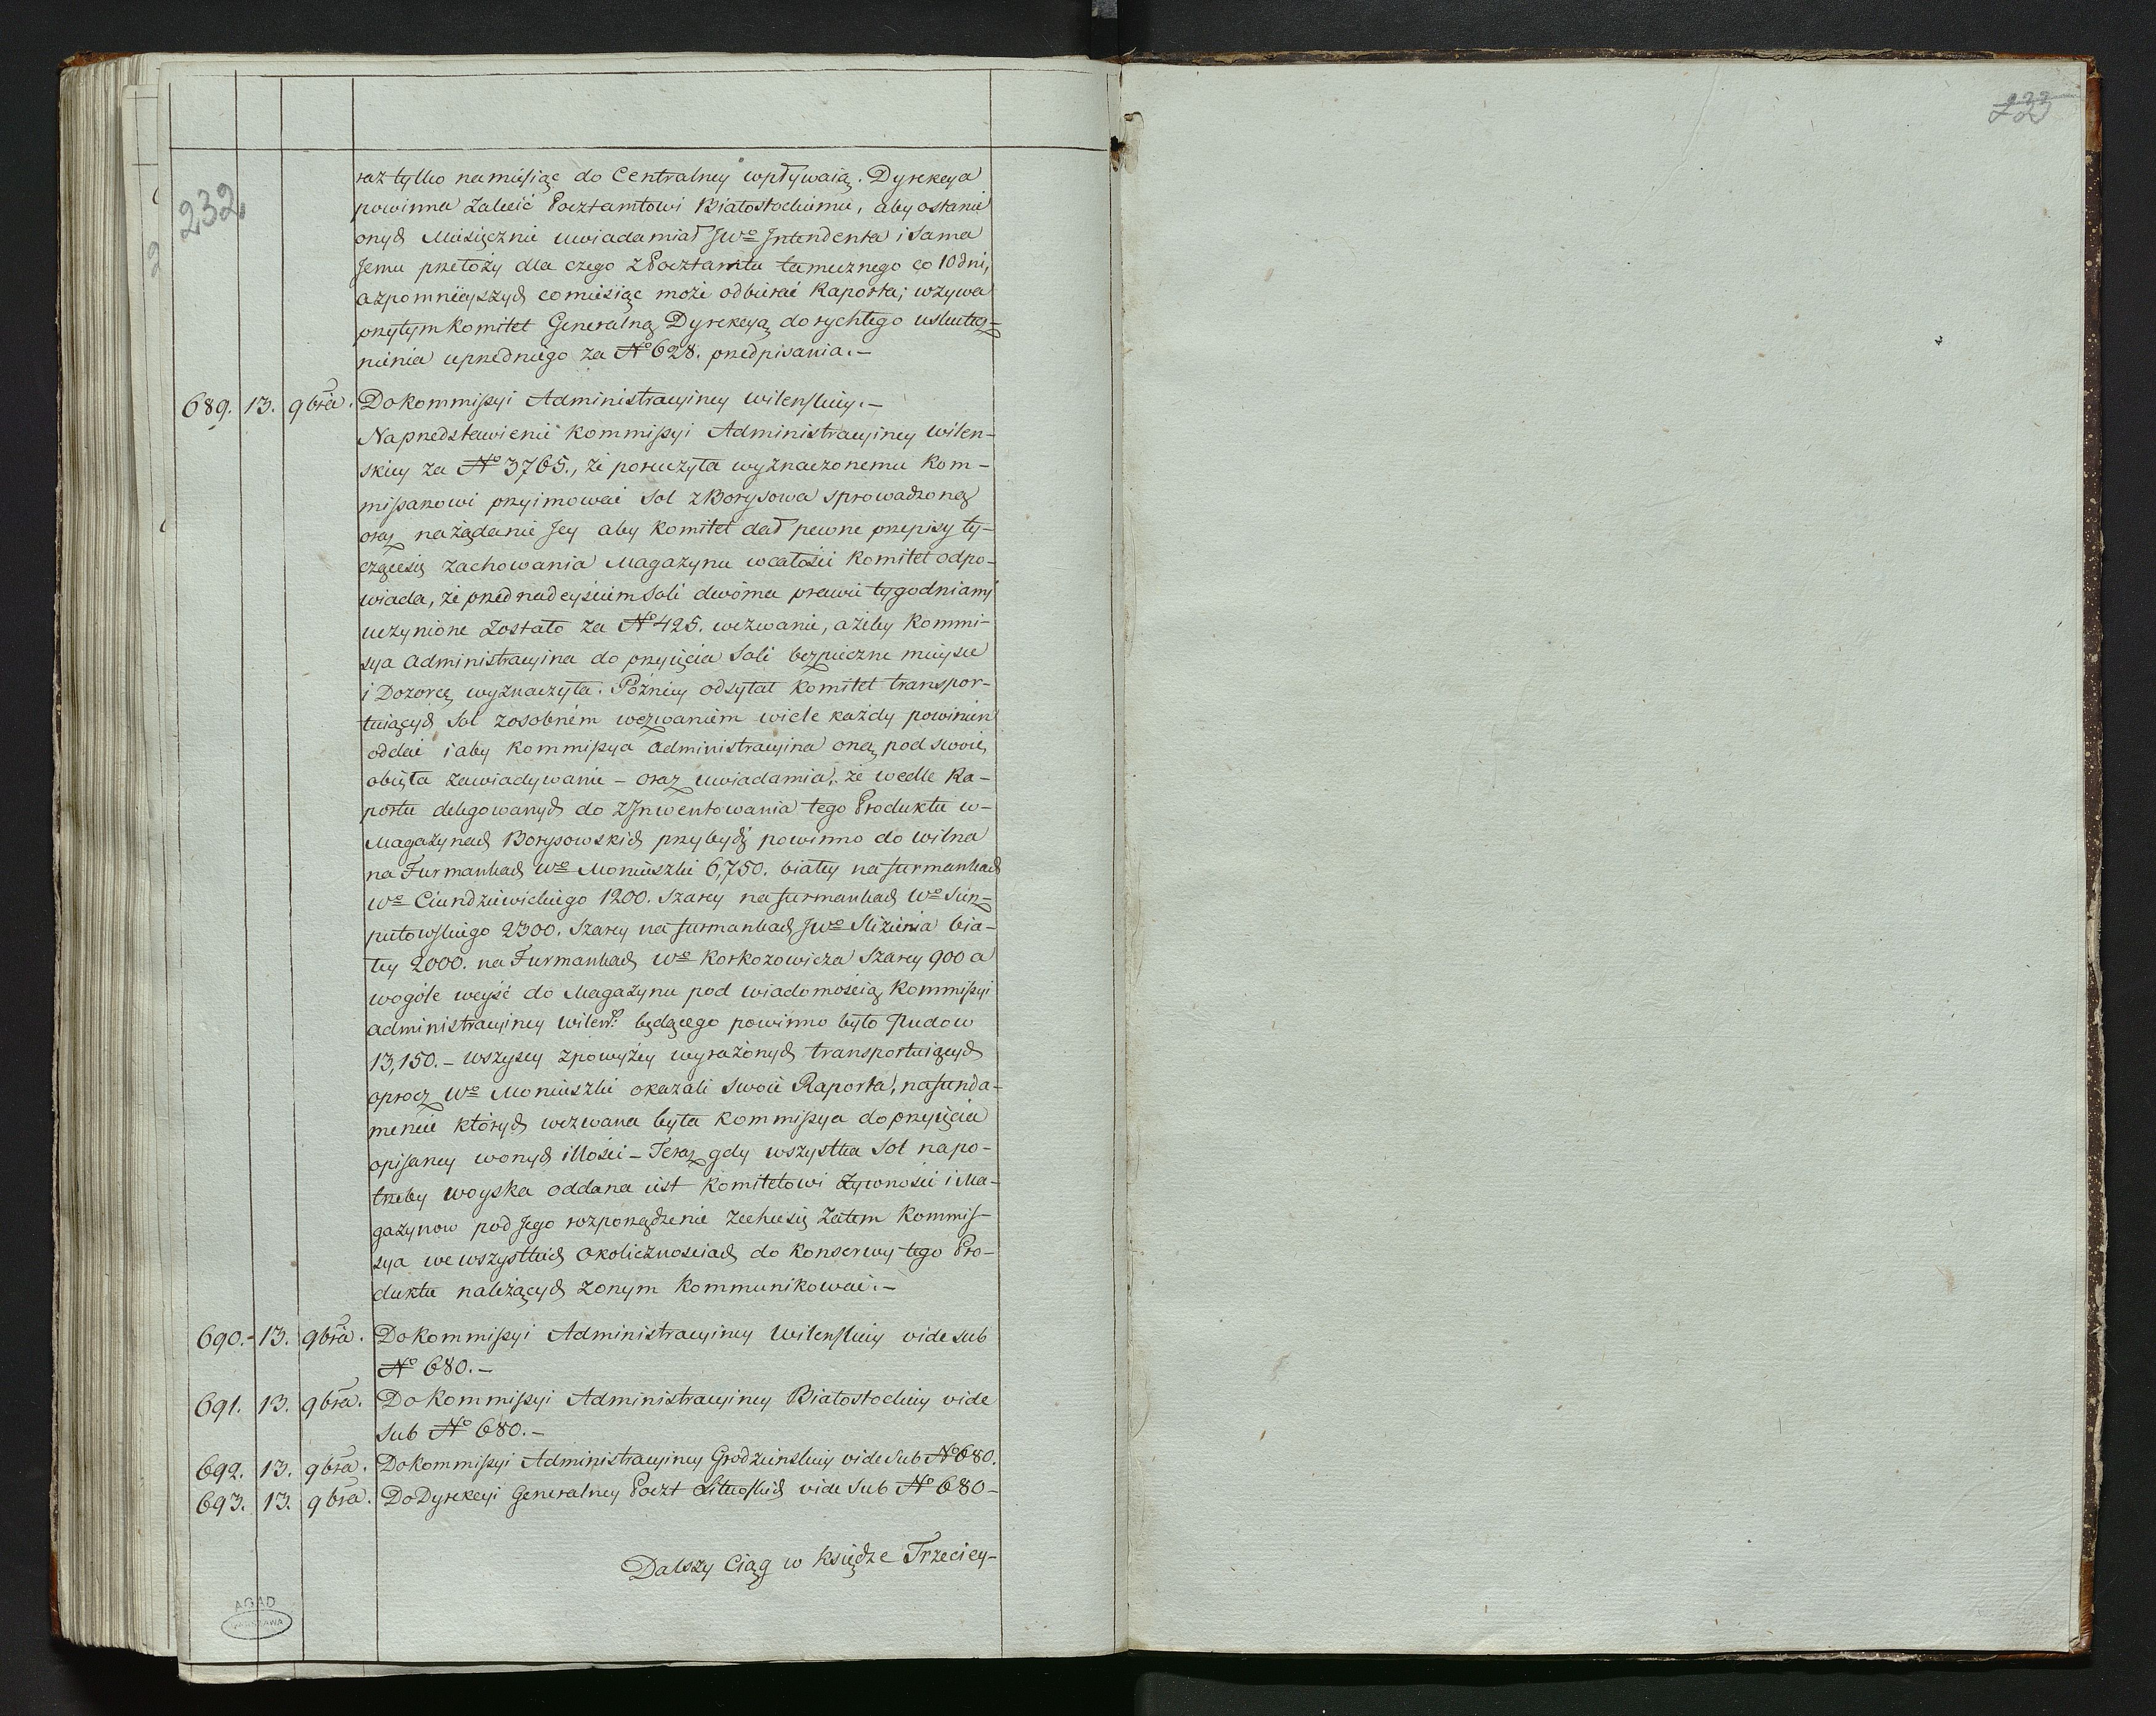 233
232.
raz tylko na miesiąc do Centralney wpływaią. Dyrekcya
powinna zalecić Pocztamtowi Białostockiemu, aby o stanie
onych Miesięcznie uwiadamiał JWo Intendenta i sama
Jemu przełoży dla czego z Pocztamtu tamecznego co 10 dni,
a z pomnieyszych co miesiąc może odbierać Raporta; wzywa
przytym Komitet Generalną Dyrekcyą do rychłego uskutecz-
nienia uprzedniego za No 628. przedpisania.-
689. 13. 9bra. Do Kommissyi Administracyiney Wilenskiey.-
Na przedstawienie Kommissyi Administracyiney Wilen-
skiey za No 3765., że poruczyła wyznaczonemu Kom-
missarzowi przyimować Sol z Borysowa sprowadzoną
oraz na żądanie Jey aby Komitet dał pewne przepisy ty-
czące się zachowania Magazynu w całości Komitet odpo-
wiada, że przed nadeyściem Soli dwóma prawie tygodniami
uczynione zostało za No 425. wezwanie, ażeby Kommi-
sya Administracyina do przyięcia Soli bezpieczne mieysce
i Dozorcę wyznaczyła. Poźniey odsyłał Komitet transpor-
tuiących Sol z osobném wezwaniem wiele każdy powinien
oddać i aby Kommissya Administracyina oną pod swoie
obięła zawiadywanie - oraz uwiadamia, że wedle Ra-
portu delegowanych do zJnwentowania tego Produktu w-
Magazynach Borysowskich przybydź powinno do Wilna
na Furmankach Wo Moniuszki 6,750. białey na furmankach
Wo Ciundziewickiego 1200. Szarey na furmankach Wo Sun-
putowskiego 2300. Szarey na furmankach JWo Slizienia bia-
łey 2000. na Furmankach Wo Korkozowicza Szarey 900 a
wogóle weyść do Magazynu pod wiadomością Kommissyi
Administracyiney Wileń: będącego powinno było Pudow
13,150.- Wszyscy z powyżey wyrażonych transportuiących
oprocz Wo Moniuszki okazali swoie Raporta, na funda-
mencie których wezwana była Kommissya do przyięcia
opisaney w onych illości - Teraz gdy wszystka Sol na po-
trzeby woyska oddana iest Komitetowi Żywności i Ma-
gazynow pod Jego rozporządzenie zechce się zatem Kommis-
sya we wszystkich okolicznościach do konserwy tego Pro-
duktu należących z onym kommunikować.-
690.- 13. 9bra. Do Kommissyi Administracyiney Wilenskiey vide sub
No 680.-
691. 13. 9bra. Do Kommissyi Administracyiney Białostockiey vide
sub No 680.-
692. 13. 9bra. Do Kommissyi Administracyiney Grodzienskiey vide Sub No 680.
693. 13. 9bra. Do Dyrekcyi Generalney Poczt Litewskich vide Sub No 680-
Dalszy Ciąg w Księdze Trzeciey-
AGAD
WARSZAWA